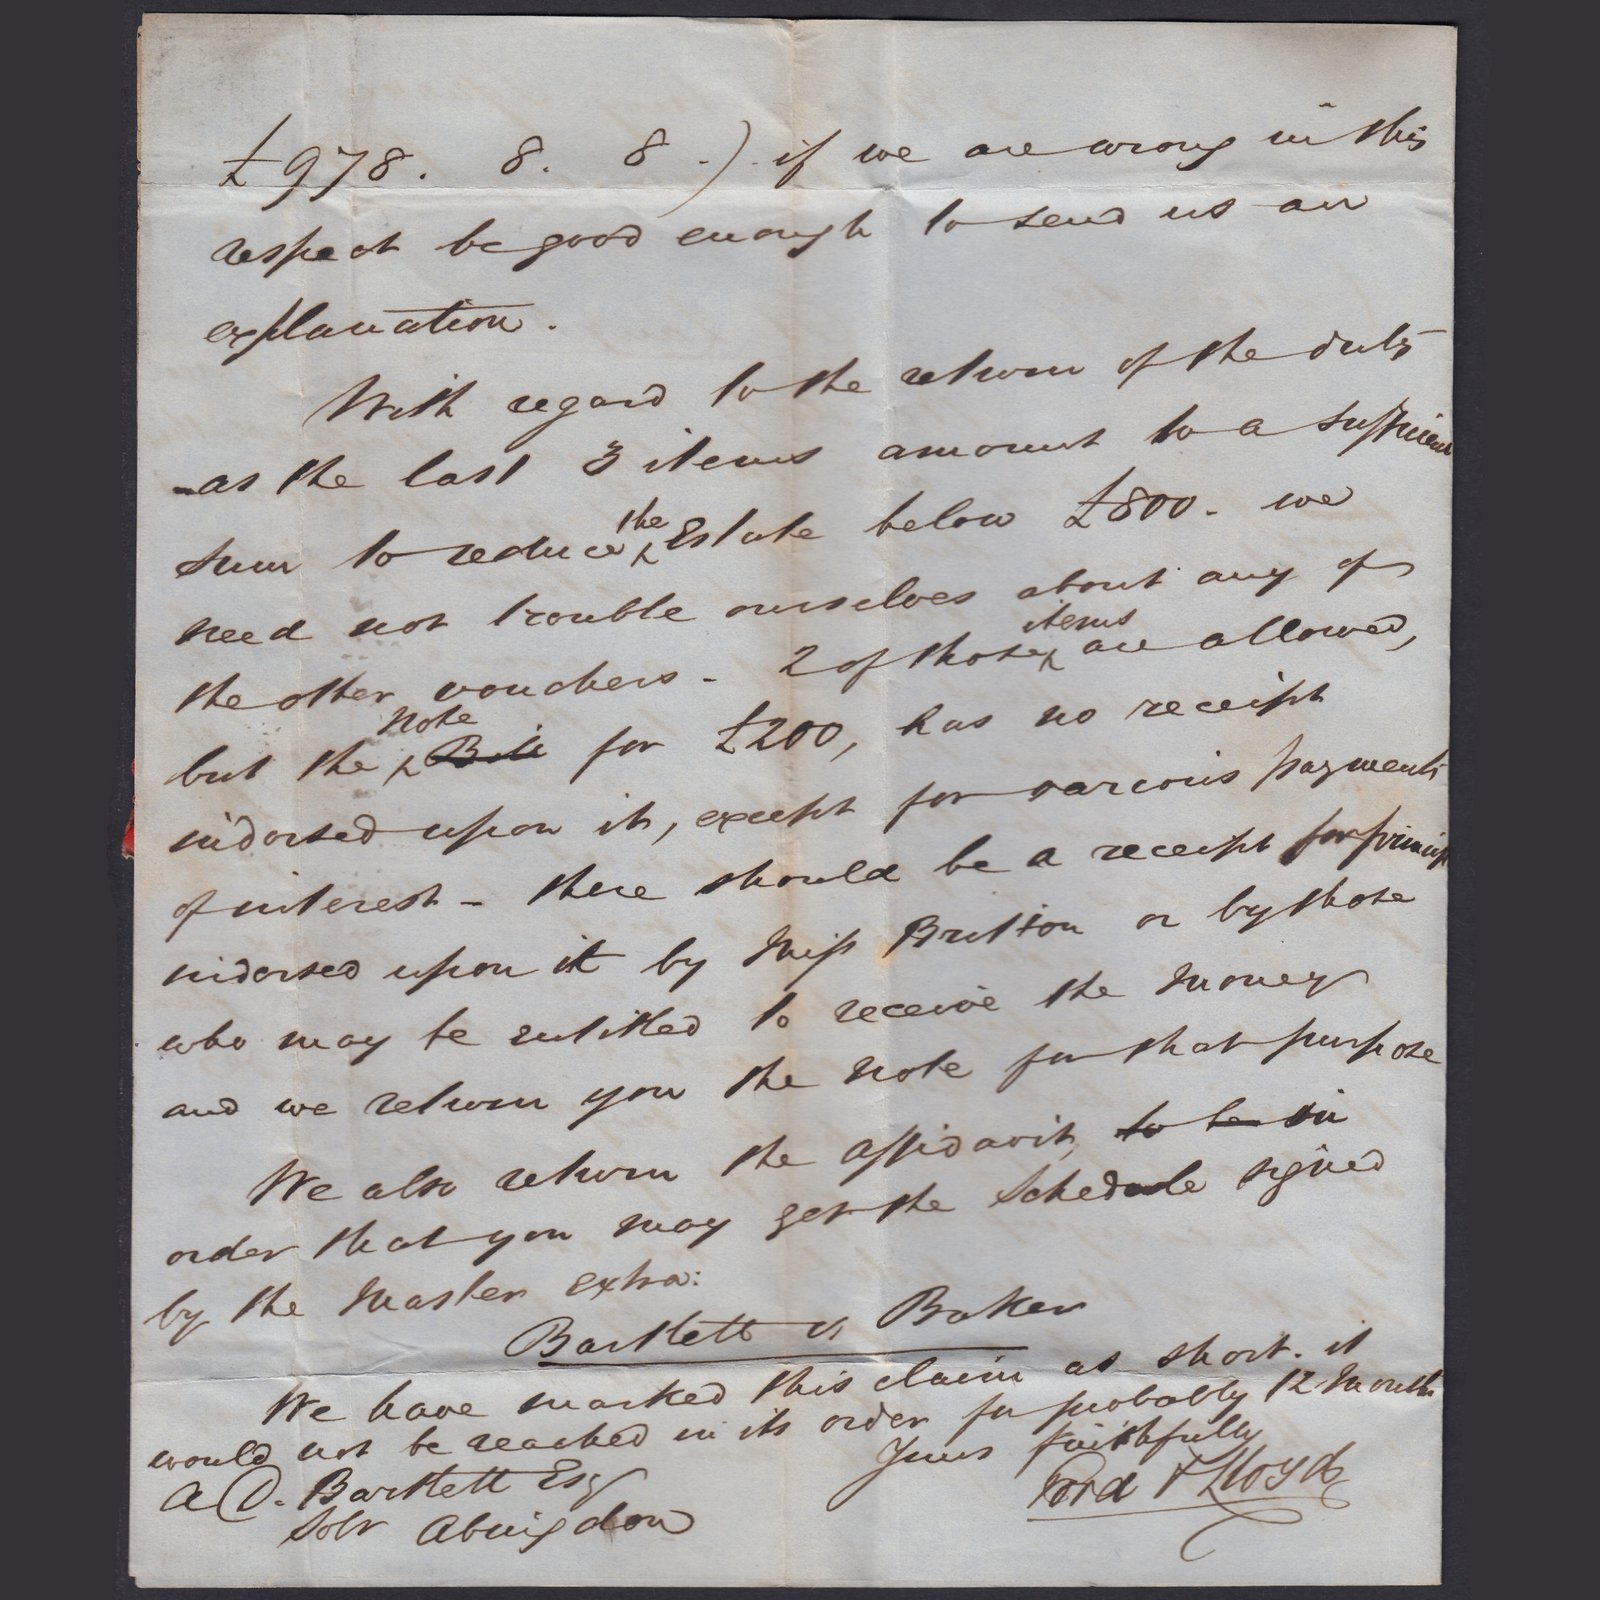 £978. 8. 8.) if we are wrong in this
respect be good enough to send us an
explanation.
With regard to the return of the duty
as the last 3 items amount to a sufficient
sum to reduce the Estate below £800. we
need not trouble ourselves about any of
the other vouchers - 2 of those items are allowed,
but the Note Bill for £200, has no receipt
indorsed upon it, except for various payments
of interest - there should be a receipt for princip
indorsed upon it by Miss Britton or by those
who may be entitled to receive the money
and we return you the note for that purpose
We also return the affidavit, to be in
order that you may get the Schedule signed
by the Master extra:
Bartlett v Baker
We have marked this claim as short. it
would not be reached in its order for probably 12 Months
Yours faithfully
A D. Bartlett Esq Ford & Lloyd
Solr Abingdon